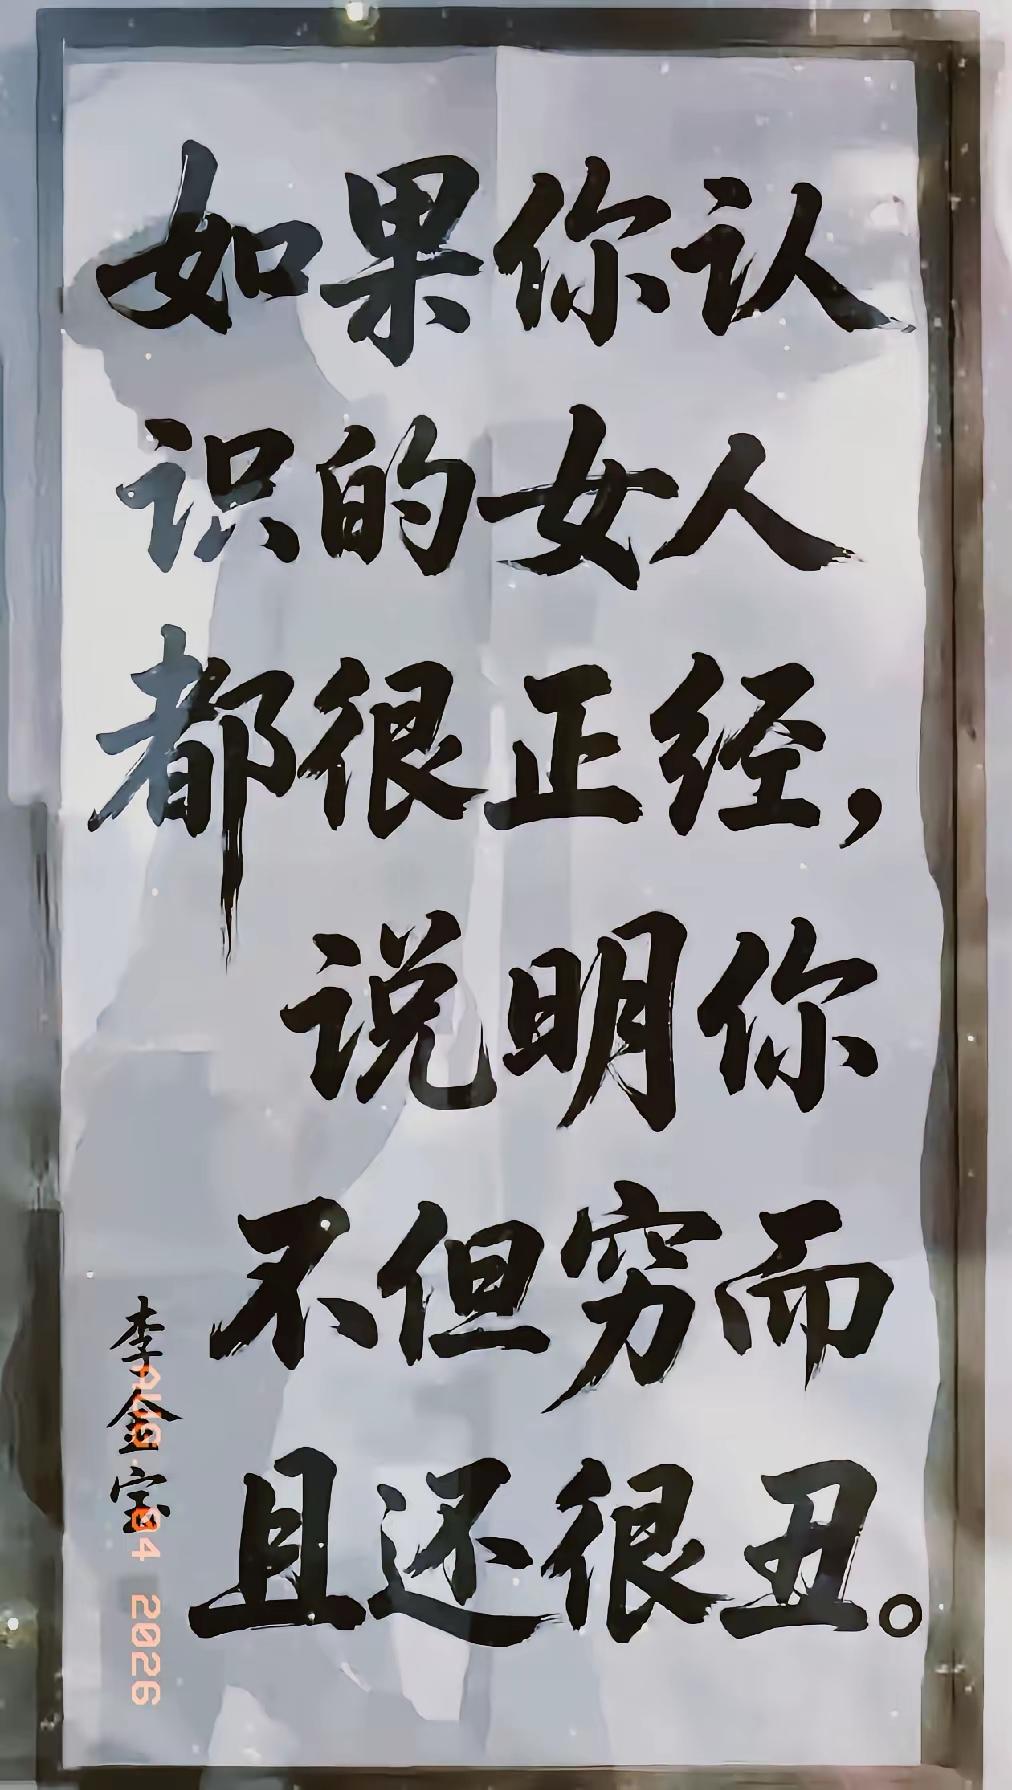 如果你认
识的女人
都很正经，
说明你
不但穷而
且还很丑。
李金宝
AUG. 04 2026